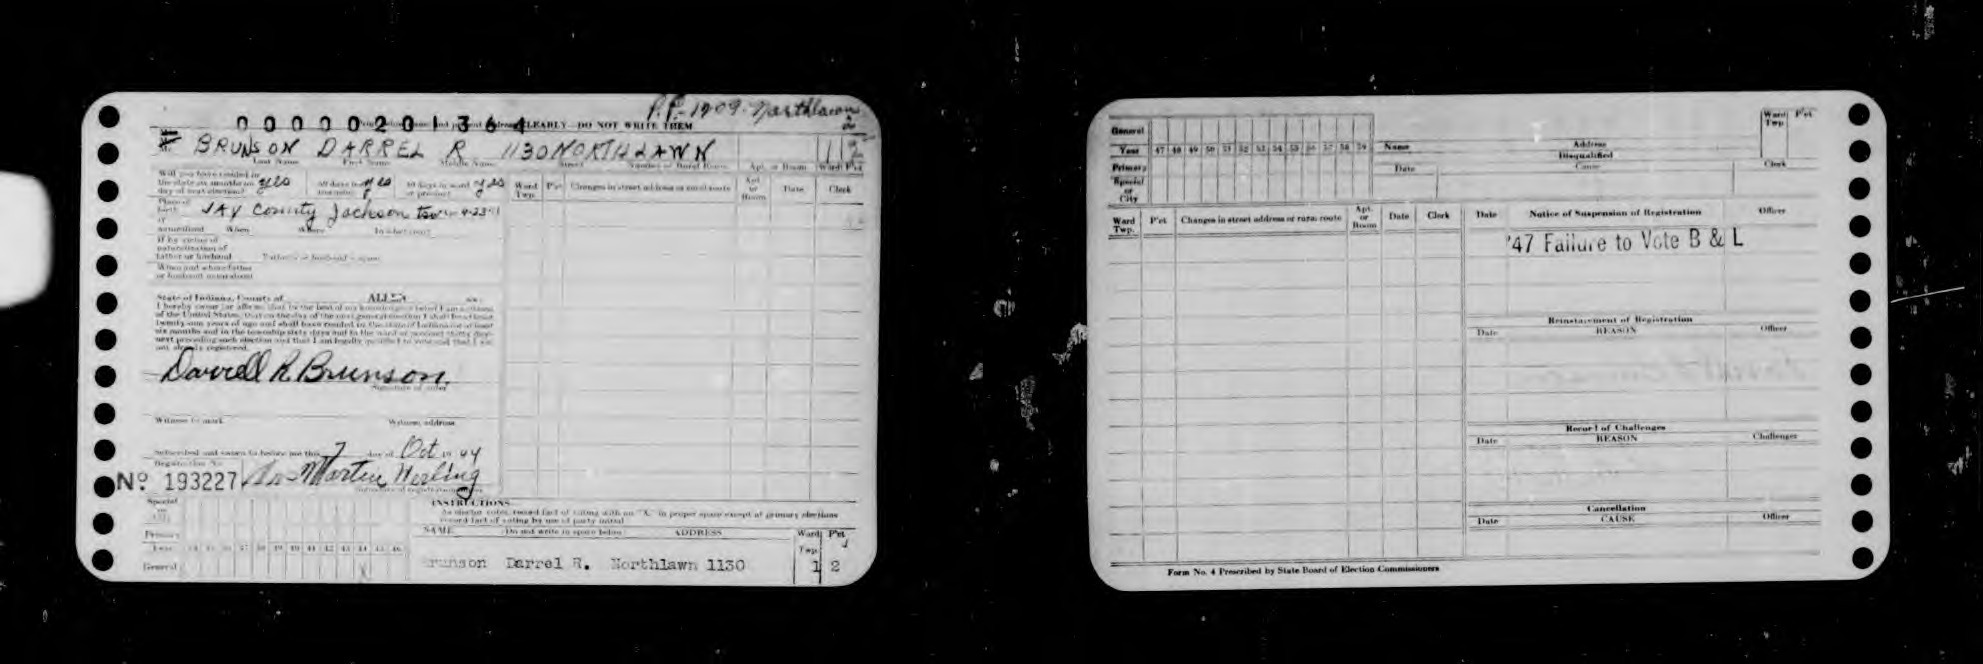 P.P. 1909 Northlawn
00000201364
CLEARLY—DO NOT WRITE THEM
BRUNSON DARREL R 1130 NORTHLAWN 1 2
Last Name First Name Middle Name Street Number or Rural Route Apt. or Room Ward P'ct
Will you have resided in
the state six months on yes 60 days in yes 30 days in ward yes
day of next election? township or precinct
Ward Twp. P'ct Changes in street address or rural route Apt. or Room Date Clerk
Place of birth JAY County Jackson
or
naturalized When Where In what court
If by virtue of
naturalization of
father or husband Father's or husband's name
When and where father
or husband naturalized
State of Indiana, County of ALLEN ss:
I hereby swear (or affirm) that to the best of my knowledge and belief I am a citizen
of the United States, that on the day of the next general election I shall be at least
twenty-one years of age and shall have resided in the state of Indiana for at least
six months and in the township sixty days and in the ward or precinct thirty days
next preceding such election and that I am legally qualified to vote and that I am
not already registered.
Darrell R. Brunson.
Signature of voter
Witness to mark Witness, address
Subscribed and sworn to before me this 7 day of Oct 19 44
Registration No.
No 193227 Martin Werling
INSTRUCTIONS
As elector votes, record fact of voting with an "X" in proper space except at primary elections
record fact of voting by use of party initial
Special
or
City
Primary
Year 34 35 36 37 38 39 40 41 42 43 44 45 46
General X
NAME (Do not write in space below) ADDRESS Ward Twp. P'ct
Brunson Darrel R. Northlawn 1130 1 2
General
Year 47 48 49 50 51 52 53 54 55 56 57 58 59
Primary
Special
or
City
Name Address Ward Twp P'ct
Disqualified
Date Cause Clerk
Ward Twp. P'ct Changes in street address or rural route Apt. or Room Date Clerk
Date Notice of Suspension of Registration Officer
'47 Failure to Vote B & L
Reinstatement of Registration
Date REASON Officer
Record of Challenges
Date REASON Challenger
Cancellation
Date CAUSE Officer
Form No. 4 Prescribed by State Board of Election Commissioners